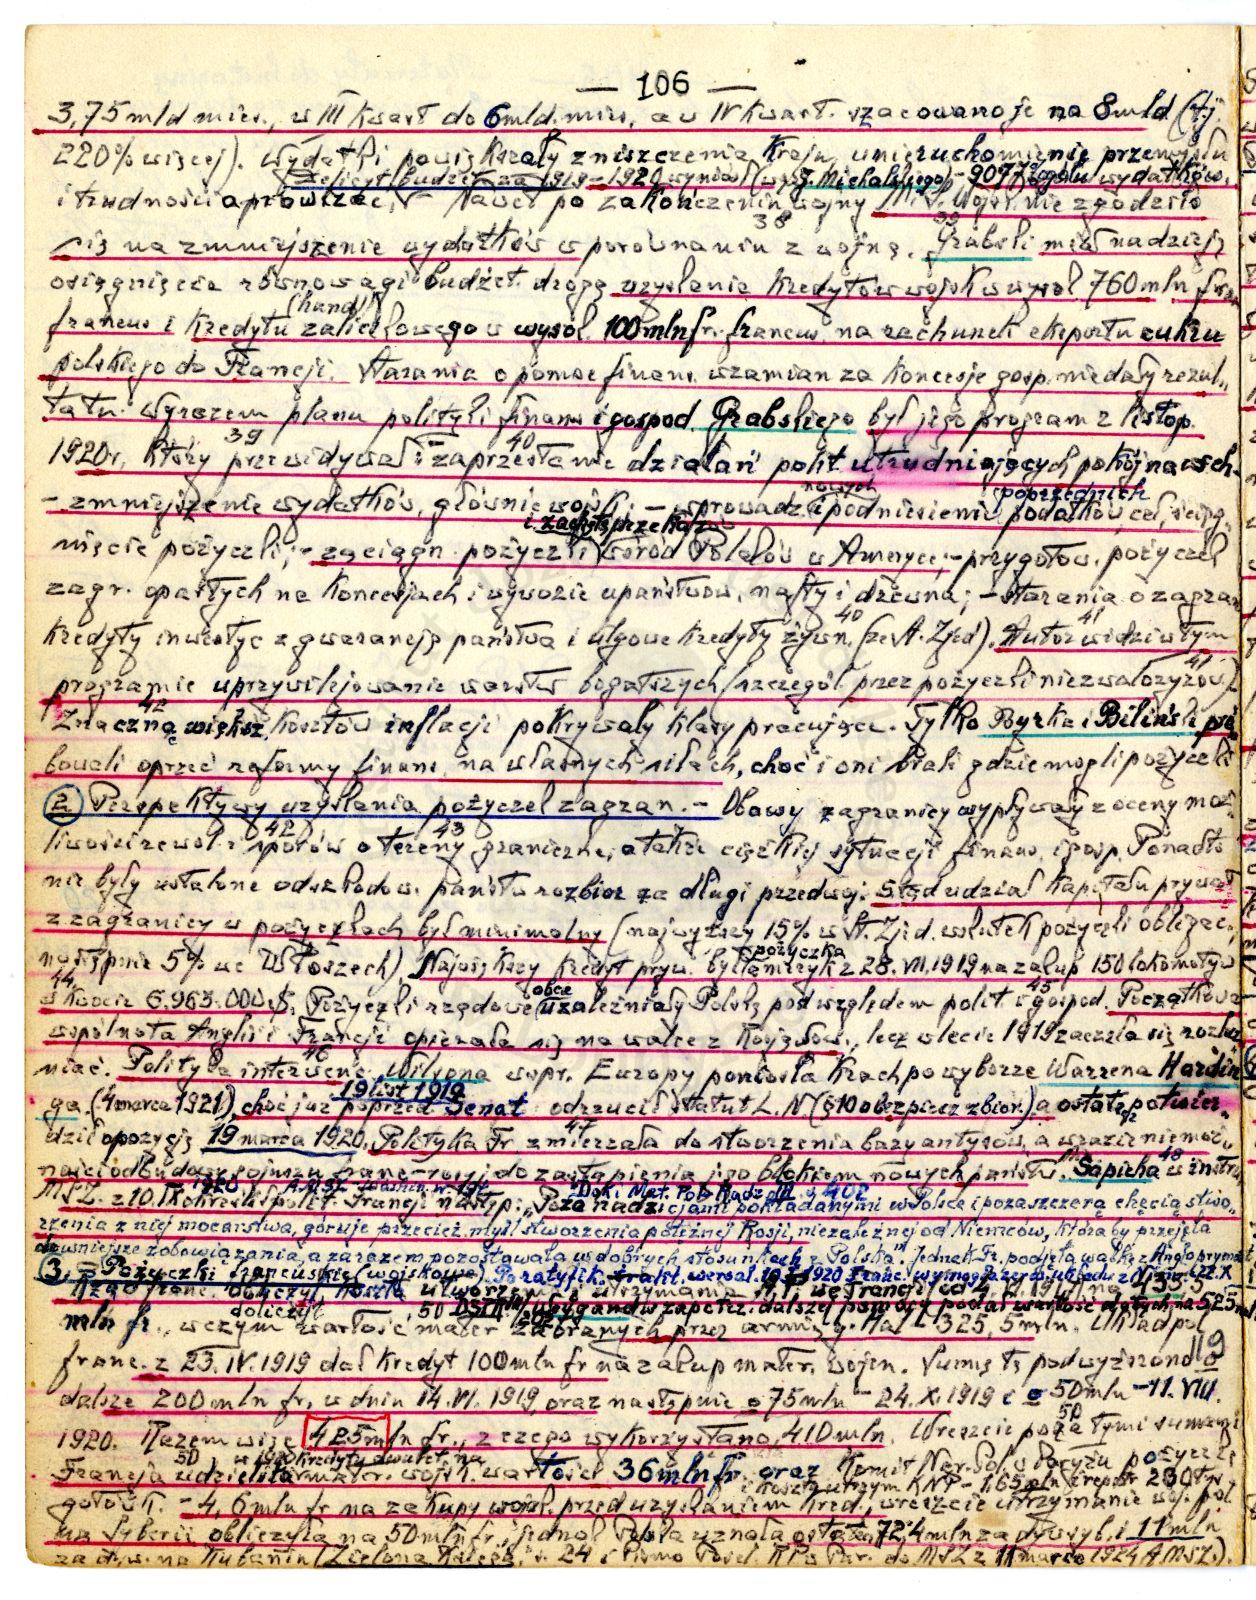 — 106 —
3,75 mld mies., w III kwart do 6 mld. mies., a w IV kwart. szacowano je na 8 mld (tj.
220% więcej). Wydatki powiększały zniszczenia kraju, unieruchomienie przemysłu
Deficyt budżet. za 1919–1920 wynosił (wg J. Michalskiego) – 90,77% ogółu wydatków.
i trudności aprowizac. – Nawet po zakończeniu wojny Min. Wojsk. nie zgodziło
38 39
się na zmniejszenie wydatków w porównaniu z wojną. Grabski miał nadzieję
osiągnięcia równowagi budżet. drogą uzyskania kredytów wojsk w wysok 760 mln
(hand)
francus i kredytu zaliczkowego w wysok. 100 mln fr. francus na rachunek eksportu cukru
polskiego do Francji. Starania o pomoc finans. wzamian za koncesje gosp. nie dały rezul-
tatu. Wyrazem planu polityki finans i gospod. Grabskiego był jego program z listop.
39 40
1920 r., który przewidywał: – zaprzestanie działań polit. utrudniających pokój na wsch.
nowych poprzednich
– zmniejszenie wydatków, głównie wojsk; – wprowadz. i podniesienie podatków, ceł,
i zaciąg przekazów
nięcie pożyczki; – zaciągn. pożyczki wśród Polaków w Ameryce; – przygotow. pożyczek
zagr. opartych na koncesjach i wywozie upaństwow. nafty i drzewa; – starania o zagran
40 41
kredyty inwestyc z gwarancją państwa i ulgowe kredyty żywn. (ze St. Zjed). Autor widzi w tym
41
programie uprzywilejowanie warstw bogatszych (szczegól. przez pożyczki niezwaloryzow.)
42
Znaczną większ. kosztów inflacji pokrywały klasy pracujące. Tylko Byrka i Biliński pró-
bowali oprzeć reformy finans. na własnych siłach, choć i oni brali gdzie mogli pożyczki
2. Perspektywy uzyskania pożyczek zagran. – Obawy zagranicy wypływały z oceny moż-
42 43
liwości rewol. i sporów o tereny graniczne, a także ciężkiej sytuacji finans. i gosp. Ponadto
nie były ustalone odszkodow. państw rozbior za długi przedwoj. Stąd udział kapitału prywat
z zagranicy w pożyczkach był minimalny (najwyższy 15% w St. Zjed. wskutek pożyczki obligac.,
pożyczka
następnie 5% we Włoszech). Największy kredyt pryw. był z 28. VII. 1919 na zakup 150 lokomotyw
44 obce 45
w kwocie 6.963.000 $. Pożyczki rządowe uzależniały Polskę pod względem polit. i gospod. Początkowa
wspólnota Anglii i Francji opierała się na walce z Rosją Sow., lecz w lecie 1919 zaczęła się rozluź-
46
niać. Polityka interwenc. Wilsona wspr. Europy poniosła krach po wyborze Warrena Hardin-
19 list 1919
ga (4 marca 1921), choć już poprzed. Senat odrzucił statut L.N (§ 10 o bezpiecz zbior.) a ostatecz potwier-
47
dził opozycję 19 marca 1920. Polityka Fr. zmierzała do stworzenia bazy antysow., a w razie niemoż-
48
ności odbudowy sojuszu franc–rosyj. do zastąpienia go blokiem nowych państw. Sapieha w instru.
1920 Dok. i Mat. Pol. Radz. III s 402
MSZ. z 10. IX określił polit. Francji następ.: „Poza nadziejami pokładanymi w Polsce i poza szczerą chęcią stwo-
rzenia z niej mocarstwa, góruje przecież myśl stworzenia potężnej Rosji, niezależnej od Niemców, która by przejęła
dawniejsze zobowiązania, a zarazem pozostawała w dobrych stosunkach z Polską". Jednak Fr. podjęła walkę z Anglo prymat
3. – Pożyczki francuskie (wojskowe).
Rząd franc. obliczył koszta utworzenia i utrzymania
doliczył 50
mln fr., w czym wartość mater zabranych przez armię g. Hall – 325,5 mln. Układ pol
119
franc. z 23. IV. 1919 dał kredyt 100 mln fr na zakup mater. wojen. Sumę tę podwyższono o
dalsze 200 mln fr. w dniu 14. VI. 1919, oraz następnie o 75 mln – 24. X. 1919 i o 50 mln – 11. VIII.
50
1920. Razem więc 425 mln fr., z czego wykorzystano 410 mln. Wreszcie poza tymi sumami
50 w 1920 kredyty dwulet. na
Francja udzieliła mater. wojsk. wartości 36 mln fr. oraz Komit Nar. Pol. w Paryżu pożyczkę
i koszty utrzym KNP – 1,65 mln i repatr 230 tys
gotówk. – 4,6 mln fr na zakupy wojsk. przed uzyskaniem kred., wreszcie utrzymanie woj. pol.
na Syberii obliczyła na 50 mln fr., jednak Polska uznała ostatecz 7,24 mln za dyw. syb. i 11 mln
za dyw. na Kubaniu (Zielona Księga, s. 24 i Pismo Posel. RP w Par. do MSZ z 11 marca 1924 AMSZ.)